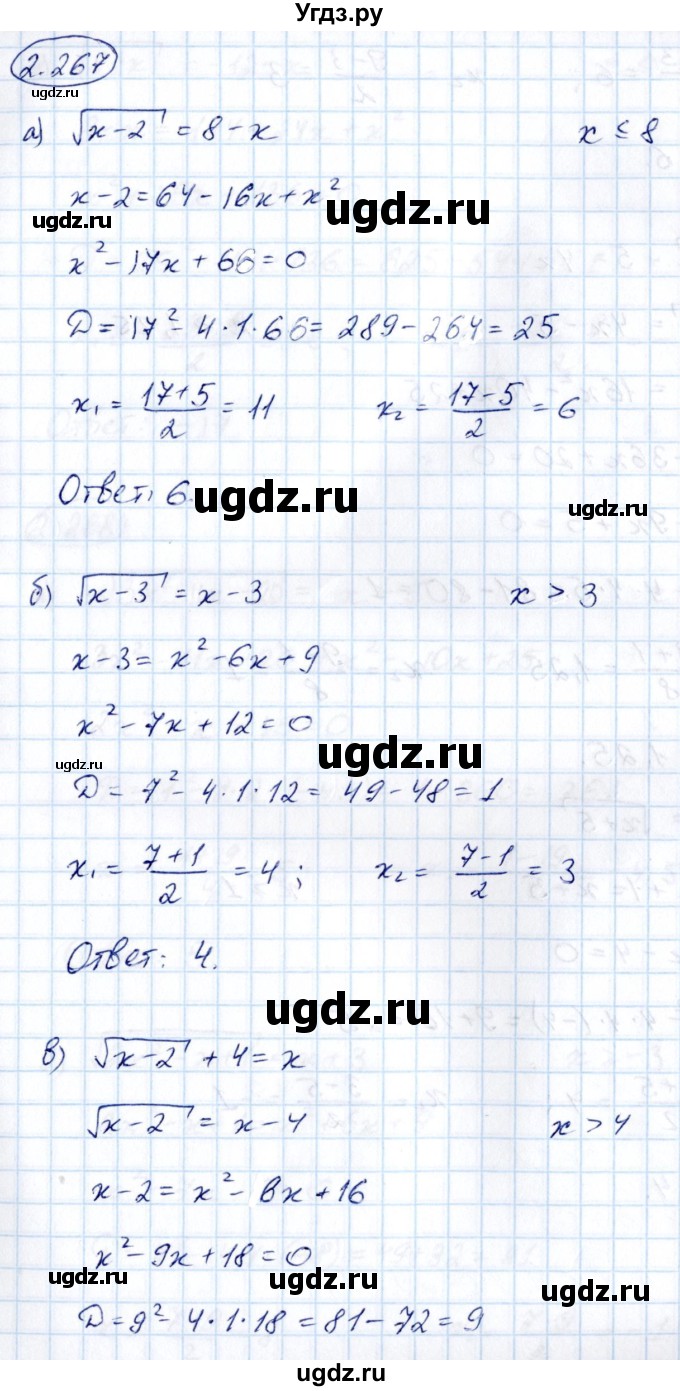 Угдз.ру
2.267
ugdz.ru
а) √x-2 = 8-x x ≤ 8
ugdz.ru
x-2=64-16x+x²
ugdz.ru
ugdz.ru
x²-17x+66=0
D=17²-4·1·66=289-264=25
x₁=(17+5)/2=11 x₂=(17-5)/2=6
Ответ: 6.
ugdz.ru
ugdz.ru
б) √x-3 = x-3 x > 3
x-3=x²-6x+9
x²-7x+12=0
ugdz.ru
ugdz.ru
D=7²-4·1·12=49-48=1
x₁=(7+1)/2=4; x₂=(7-1)/2=3
Ответ: 4.
ugdz.ru
в) √x-2 + 4 = x
√x-2 = x-4 x > 4
x-2=x²-8x+16
x²-9x+18=0
ugdz.ru
ugdz.ru
D=9²-4·1·18=81-72=9
ugdz.ru